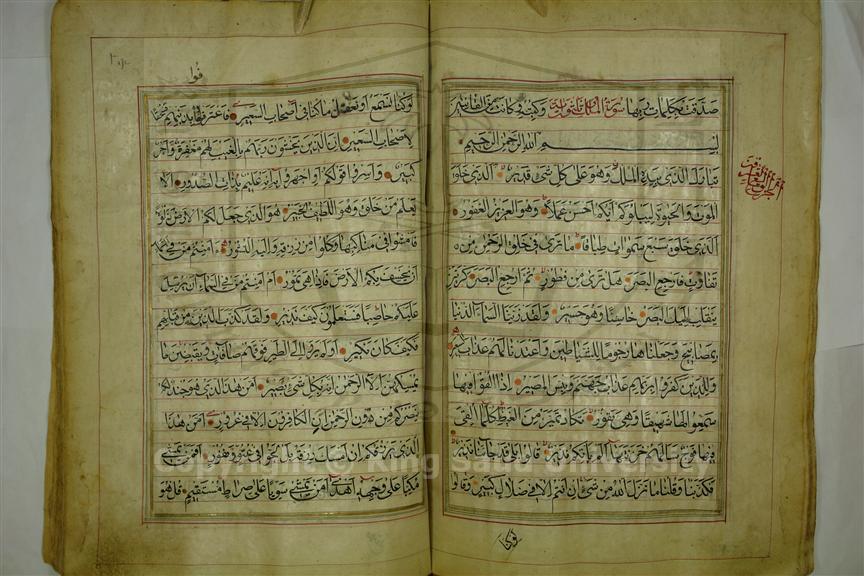 صدقت بكلمات ربها سورة الملك ثلثون اية وكتبه وكانت من القانتين
بسم الله الرحمن الرحيم
تبارك الذي بيده الملك وهو على كل شئ قدير الذي خلق
الموت والحيوة ليبلوكم ايكم احسن عملا وهو العزيز الغفور
الذي خلق سبع سموات طباقا ما ترى في خلق الرحمن من
تفاوت فارجع البصر هل ترى من فطور ثم ارجع البصر كرتين
ينقلب اليك البصر خاسئا وهو حسير ولقد زينا السماء الدنيا
بمصابيح وجعلناها رجوما للشياطين واعتدنا لهم عذاب السعير
وللذين كفروا بربهم عذاب جهنم وبئس المصير اذا القوا فيها
سمعوا لها شهيقا وهي تفور تكاد تميز من الغيظ كلما القي
فيها فوج سالهم خزنتها الم ياتكم نذير قالوا بلى قد جاءنا نذير
فكذبنا وقلنا ما نزل الله من شئ ان انتم الا في ضلال كبير وقالوا
لوكنا
لو كنا نسمع او نعقل ما كنا في اصحاب السعير فاعترفوا بذنبهم فسحقا
لاصحاب السعير ان الذين يخشون ربهم بالغيب لهم مغفرة واجر
كبير واسروا قولكم او اجهروا به انه عليم بذات الصدور الا
يعلم من خلق وهو اللطيف الخبير هو الذي جعل لكم الارض ذلولا
فامشوا في مناكبها وكلوا من رزقه واليه النشور ءامنتم من في السماء
ان يخسف بكم الارض فاذا هي تمور ام امنتم من في السماء ان يرسل
عليكم حاصبا فستعلمون كيف نذير ولقد كذب الذين من قبلهم
فكيف كان نكير اولم يروا الى الطير فوقهم صافات ويقبضن ما
يمسكهن الا الرحمن انه بكل شئ بصير امن هذا الذي هو جند لكم
ينصركم من دون الرحمن ان الكافرون الا في غرور امن هذا
الذي يرزقكم ان امسك رزقه بل لجوا في عتو ونفور افمن يمشي
مكبا على وجهه اهدى امن يمشي سويا على صراط مستقيم قل هو
King Saud University